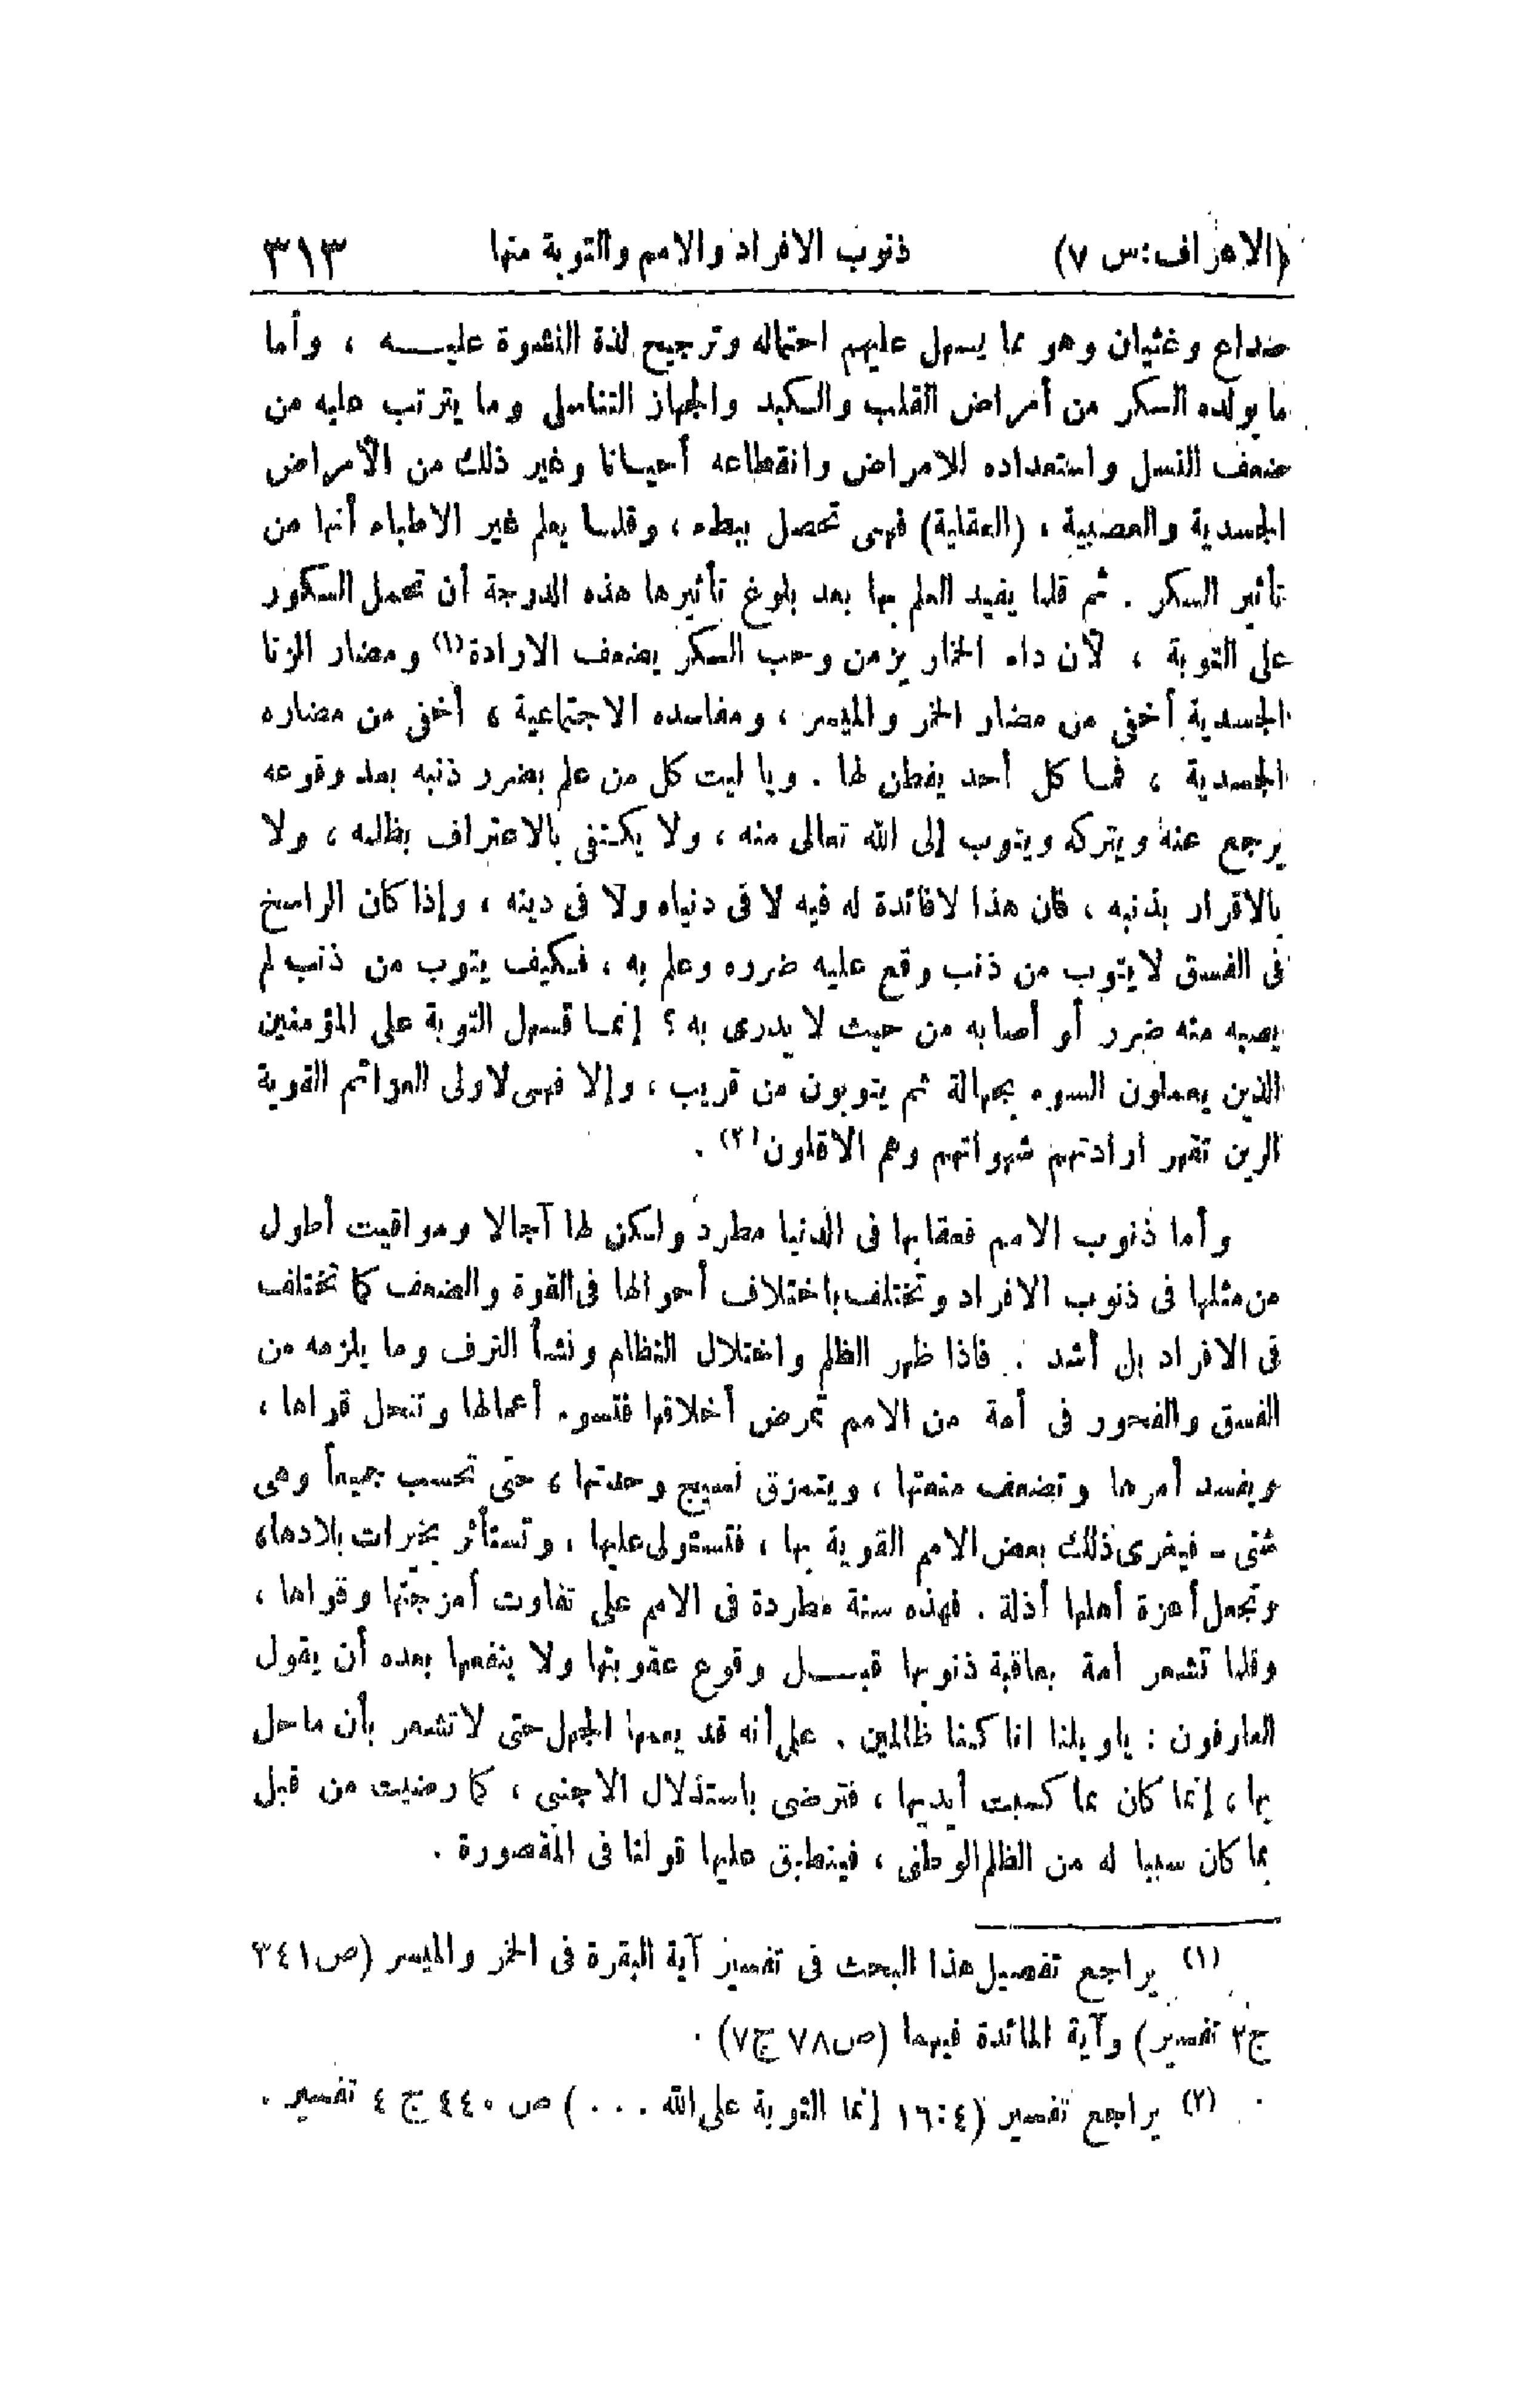 (الاعراف:س ٧) ذنوب الافراد والامم والتوبة منها ٣١٣
صداع وغثيان وهو مما يسهل عليهم احتماله وترجيح لذة النشوة عليــه ، وأما
ما يولده السكر من أمراض القلب والكبد والجهاز التناسلي وما يترتب عليه من
ضعف النسل واستعداده للامراض وانقطاعه أحيانا وغير ذلك من الأمراض
الجسدية والعصبية ، (العقلية) فهي تحصل ببطء ، وقلما يعلم غير الاطباء أنها من
تأثير السكر . ثم قلما يفيد العلم بها بعد بلوغ تأثيرها هذه الدرجة أن تحمل السكور
على التوبة ، لأن داء الخمار يزمن وحب السكر يضعف الارادة (١) ومضار الزنا
الجسدية أخفى من مضار الخمر والميسر ، ومفاسده الاجتماعية ، أخفى من مضاره
الجسدية ، فما كل أحد يفطن لها . ويا ليت كل من علم بضرر ذنبه بعد وقوعه
يرجع عنه ويتركه ويتوب إلى الله تعالى منه ، ولا يكتفى بالاعتراف بظلمه ، ولا
بالاقرار بذنبه ، فان هذا لافائدة له فيه لا فى دنياه ولا فى دينه ، وإذا كان الراسخ
فى الفسق لا يتوب من ذنب وقع عليه ضرره وعلم به ، فكيف يتوب من ذنب لم
يصبه منه ضرر أو أصابه من حيث لا يدرى به ؟ إنما تسهل التوبة على المؤمنين
الذين يعملون السوء بجهالة ثم يتوبون من قريب ، وإلا فهى لاولى العزائم القوية
الذين تقهر ارادتهم شهواتهم وهم الاقلون (٢) .
وأما ذنوب الامم فعقابها فى الدنيا مطرد ولكن لها آجالا ومواقيت أطول
من مثلها فى ذنوب الافراد وتختلف باختلاف أحوالها فى القوة والضعف كما تختلف
فى الافراد بل أشد . فاذا ظهر الظلم واختلال النظام ونشأ الترف وما يلزمه من
الفسق والفجور فى أمة من الامم تمرض أخلاقها فتسوء أعمالها وتنحل قواها ،
ويفسد أمرها وتضعف منعتها ، ويتمزق نسيج وحدتها ، حتى تحسب جميعاً وهى
شتى ــ فيغرى ذلك بعض الامم القوية بها ، فتستولى عليها ، وتستأثر بخيرات بلادها ،
وتجعل أعزة أهلها أذلة . فهذه سنة مطردة فى الامم على تفاوت أمزجتها وقواها ،
وقلما تشعر امة بعاقبة ذنوبها قبــل وقوع عقوبتها ولا ينفعها بعده أن يقول
العارفون : ياويلنا انا كنا ظالمين . على أنه قد يعمها الجهل حتى لا تشعر بأن ما حل
بها ، إنما كان مما كسبت أيديها ، فترضى باستذلال الاجنبى ، كما رضيت من قبل
بما كان سببا له من الظلم الوطنى ، فينطبق عليها قولنا فى المقصورة .
(١) يراجع تفصيل هذا البحث فى تفسير آية البقرة فى الخمر والميسر (ص ٣٤١
ج٢ تفسير) وآية المائدة فيهما (ص٧٨ ج٧) .
(٢) يراجع تفسير (١٦:٤ إنما التوبة على الله . . .) ص ٤٤٠ ج ٤ تفسير .